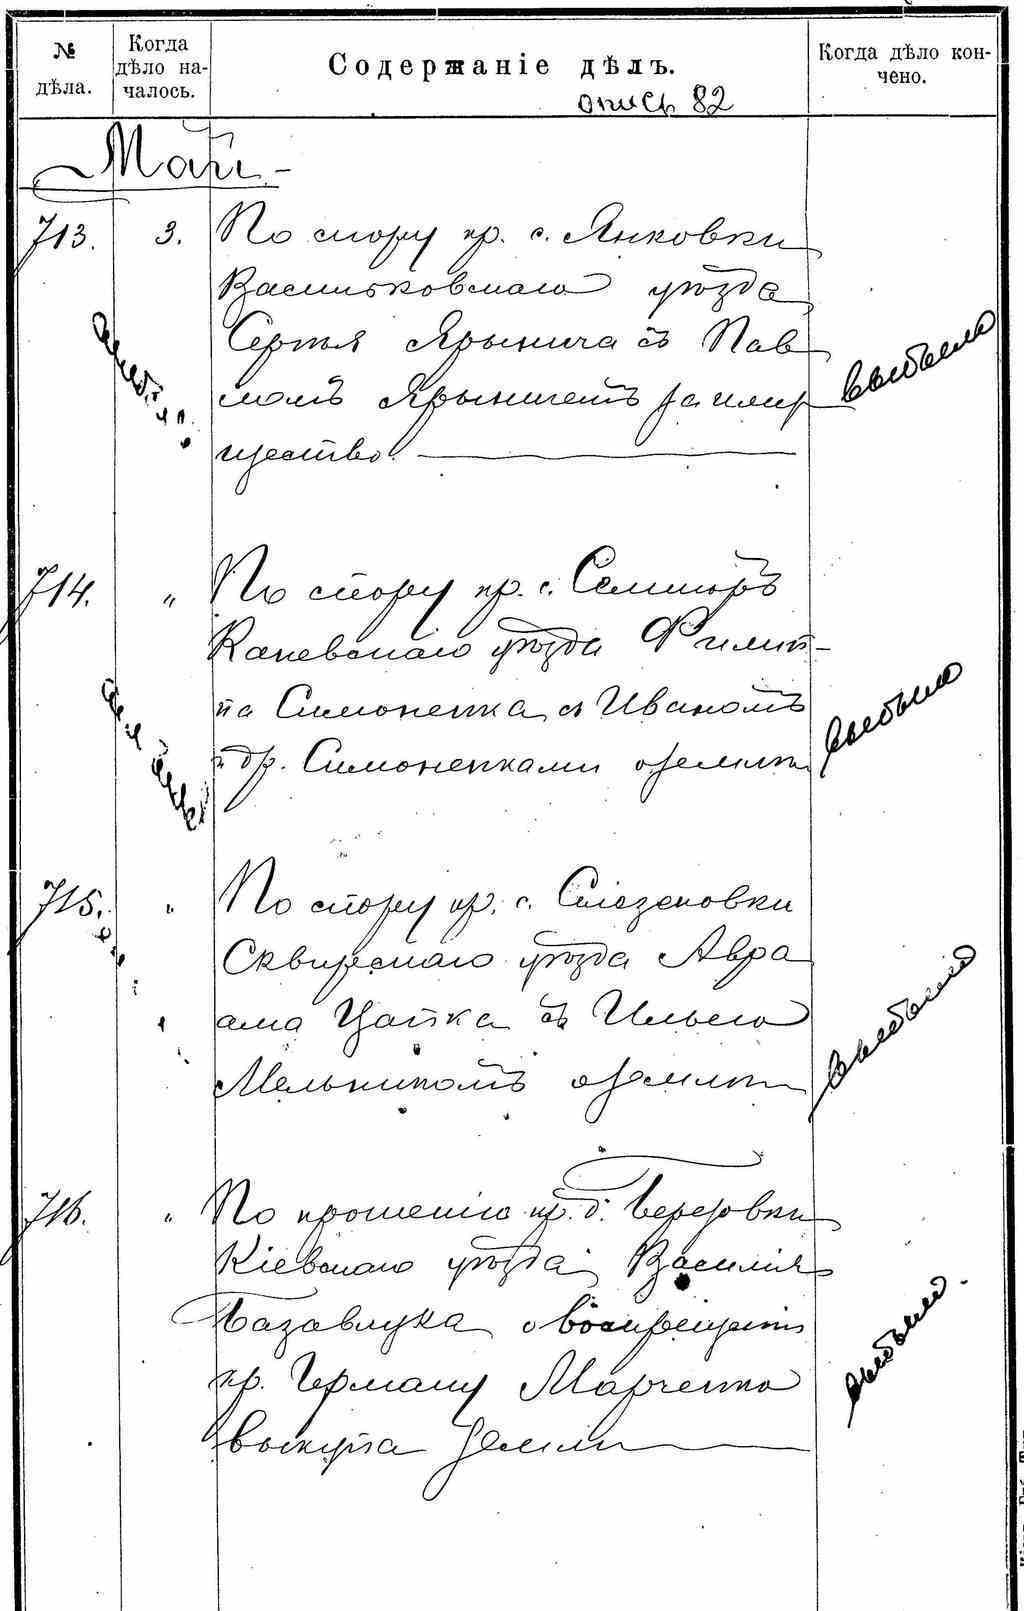 № дѣла.
Когда дѣло началось.
Содержаніе дѣлъ.
Когда дѣло кончено.
опись 82
Май.
713. 3. По спору кр. с. Янковки
Васильковскаго уѣзда
Сергѣя Ярынича съ Пав
ломъ Ярыничемъ за иму
щество.
выбыло
714. " По спору кр. с.
Каневскаго уѣзда Филип-
па Симоненка съ Иваномъ
и др. Симоненками о землѣ
выбыло
715. " По спору кр. с.
Сквирскаго уѣзда Авра
ама Цапка съ Ильею
Мельникомъ о землѣ
выбыло
716. " По прошенію кр. д. Березовки
Кіевскаго уѣзда Василія
Базавлука о воспрещеніи
кр. Герману Марченко
выкупа земли
выбыло.